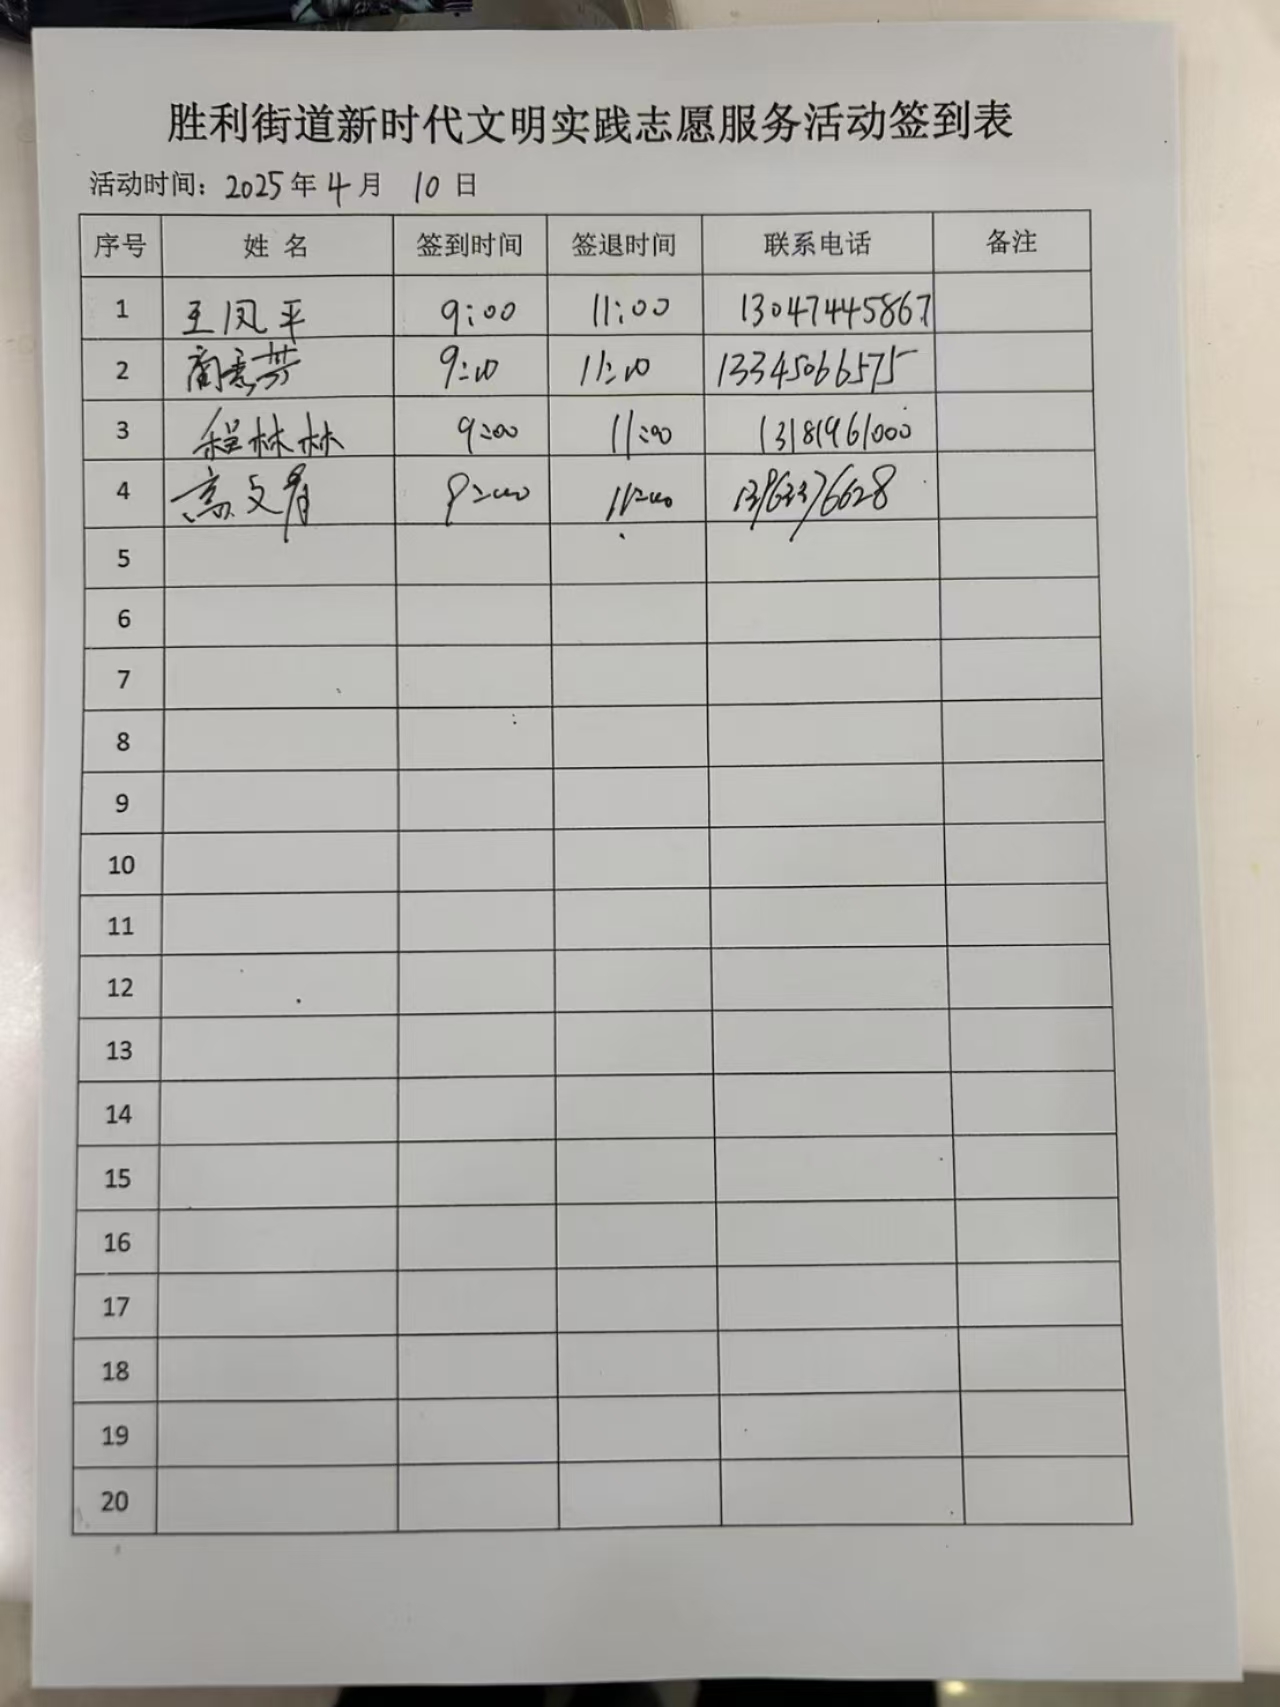 胜利街道新时代文明实践志愿服务活动签到表
活动时间：2025年4月 10日
序号 姓 名 签到时间 签退时间 联系电话 备注
1 王凤平 9:00 11:00 13047445867
2 9:00 11:00 13345066575
3 程林林 9:00 11:00 13181961000
4 高文 9:00 11:00 13963376628
5
6
7
8
9
10
11
12
13
14
15
16
17
18
19
20